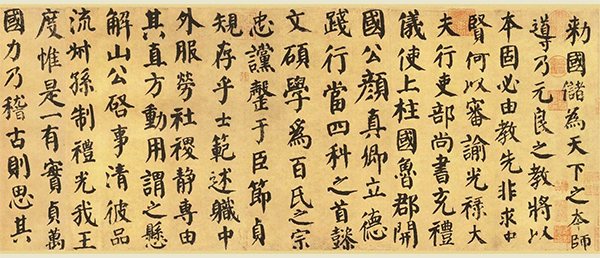 敕國儲為天下之本師
導乃元良之教將以
本固必由教先非求中
賢何以審諭光祿大
夫行吏部尚書充禮
儀使上柱國魯郡開
國公顏真卿立德
踐行當四科之首懿
文碩學為百氏之宗
忠讜罄于臣節貞
規存乎士範述職中
外服勞社稷靜專由
其直方動用謂之懸
解山公啓事清彼品
流叔孫制禮光我王
度惟是一有實貞萬
國力乃稽古則思其